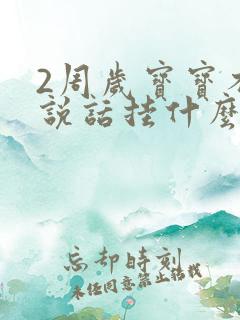 2周岁寶寶不
説話挂什麽
忘却時刻
未经同意禁止转载